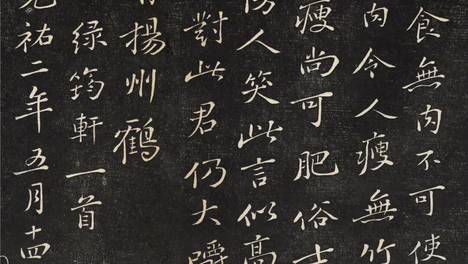 食無肉不可使
肉令人瘦無竹
瘦尚可肥俗士
人笑此言似高
對此君仍大嚼
揚州鶴
綠筠軒一首
元祐二年五月十四